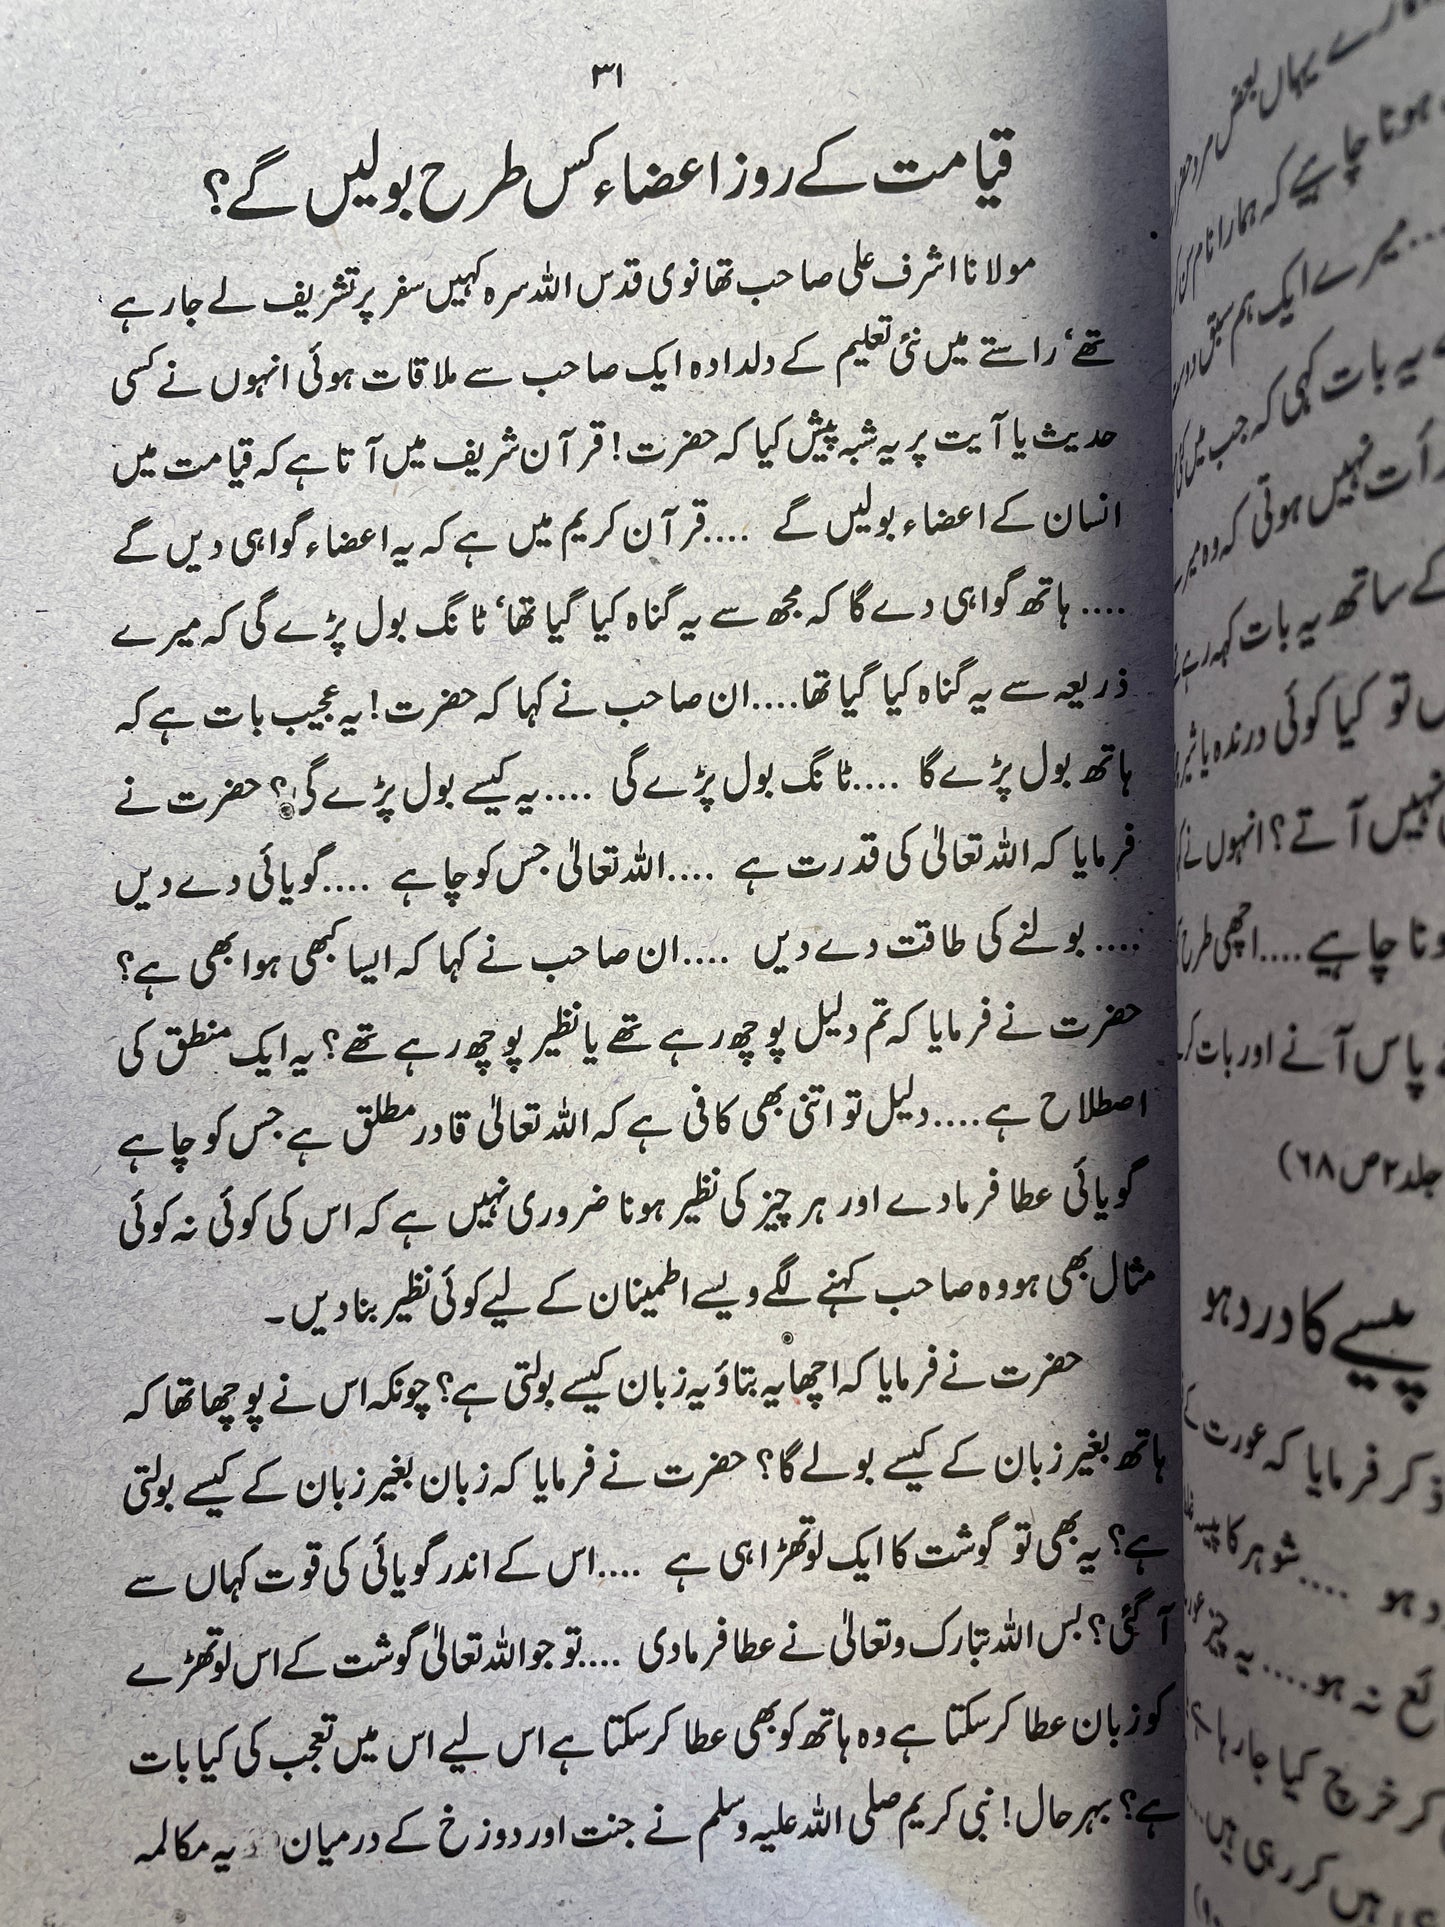 ۳۱
قیامت کے روز اعضاء کس طرح بولیں گے؟
مولانا اشرف علی صاحب تھانوی قدس اللہ سرہ کہیں سفر پر تشریف لے جا رہے
تھے‘ راستے میں نئی تعلیم کے دلدادہ ایک صاحب سے ملاقات ہوئی انہوں نے کسی
حدیث یا آیت پر یہ شبہ پیش کیا کہ حضرت! قرآن شریف میں آتا ہے کہ قیامت میں
انسان کے اعضاء بولیں گے ....قرآن کریم میں ہے کہ یہ اعضاء گواہی دیں گے
.... ہاتھ گواہی دے گا کہ مجھ سے یہ گناہ کیا گیا تھا‘ ٹانگ بول پڑے گی کہ میرے
ذریعہ سے یہ گناہ کیا گیا تھا....ان صاحب نے کہا کہ حضرت! یہ عجیب بات ہے کہ
ہاتھ بول پڑے گا ....ٹانگ بول پڑے گی ....یہ کیسے بول پڑے گی؟ حضرت نے
فرمایا کہ اللہ تعالیٰ کی قدرت ہے ....اللہ تعالیٰ جس کو چاہے ....گویائی دے دیں
.... بولنے کی طاقت دے دیں ....ان صاحب نے کہا کہ ایسا کبھی ہوا بھی ہے؟
حضرت نے فرمایا کہ تم دلیل پوچھ رہے تھے یا نظیر پوچھ رہے تھے؟ یہ ایک منطق کی
اصطلاح ہے....دلیل تو اتنی بھی کافی ہے کہ اللہ تعالیٰ قادر مطلق ہے جس کو چاہے
گویائی عطا فرما دے اور ہر چیز کی نظیر ہونا ضروری نہیں ہے کہ اس کی کوئی نہ کوئی
مثال بھی ہو وہ صاحب کہنے لگے ویسے اطمینان کے لیے کوئی نظیر بنا دیں۔
حضرت نے فرمایا کہ اچھا یہ بتاؤ یہ زبان کیسے بولتی ہے؟ چونکہ اس نے پوچھا تھا کہ
ہاتھ بغیر زبان کے کیسے بولے گا؟ حضرت نے فرمایا کہ زبان بغیر زبان کے کیسے بولتی
ہے؟ یہ بھی تو گوشت کا ایک لوتھڑا ہی ہے ....اس کے اندر گویائی کی قوت کہاں سے
آ گئی؟ بس اللہ تبارک وتعالیٰ نے عطا فرما دی ....تو جو اللہ تعالیٰ گوشت کے اس لوتھڑے
کو زبان عطا کر سکتا ہے وہ ہاتھ کو بھی عطا کر سکتا ہے اس لیے اس میں تعجب کی کیا بات
ہے؟ بہرحال! نبی کریم صلی اللہ علیہ وسلم نے جنت اور دوزخ کے درمیان یہ مکالمہ
یہاں بعض
ہونا چاہیے کہ ہمارا نام سن کر
....میرے ایک ہم سبق
یہ بات کہی کہ جب میں
نہیں ہوتی کہ وہ
کے ساتھ یہ بات کہہ رہے
تو کیا کوئی درندہ یا
نہیں آتے؟ انہوں نے
ہونا چاہیے....اچھی طرح
پاس آنے اور بات
جلد ۲ ص ۶۸)
پیسے کا درد ہو
ذکر فرمایا کہ عورت کے
....شوہر کا پیسہ
نہ ہو....یہ چیز
کر خرچ کیا جا رہا ہے
کر رہی ہیں